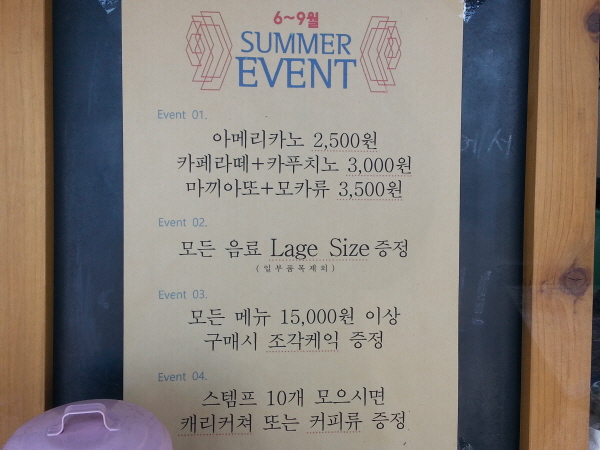 6~9월
SUMMER
EVENT
Event 01.
아메리카노 2,500원
카페라떼+카푸치노 3,000원
마끼아또+모카류 3,500원
Event 02.
모든 음료 Lage Size 증정
(일부품목제외)
Event 03.
모든 메뉴 15,000원 이상
구매시 조각케익 증정
Event 04.
스템프 10개 모으시면
캐리커쳐 또는 커피류 증정
에서